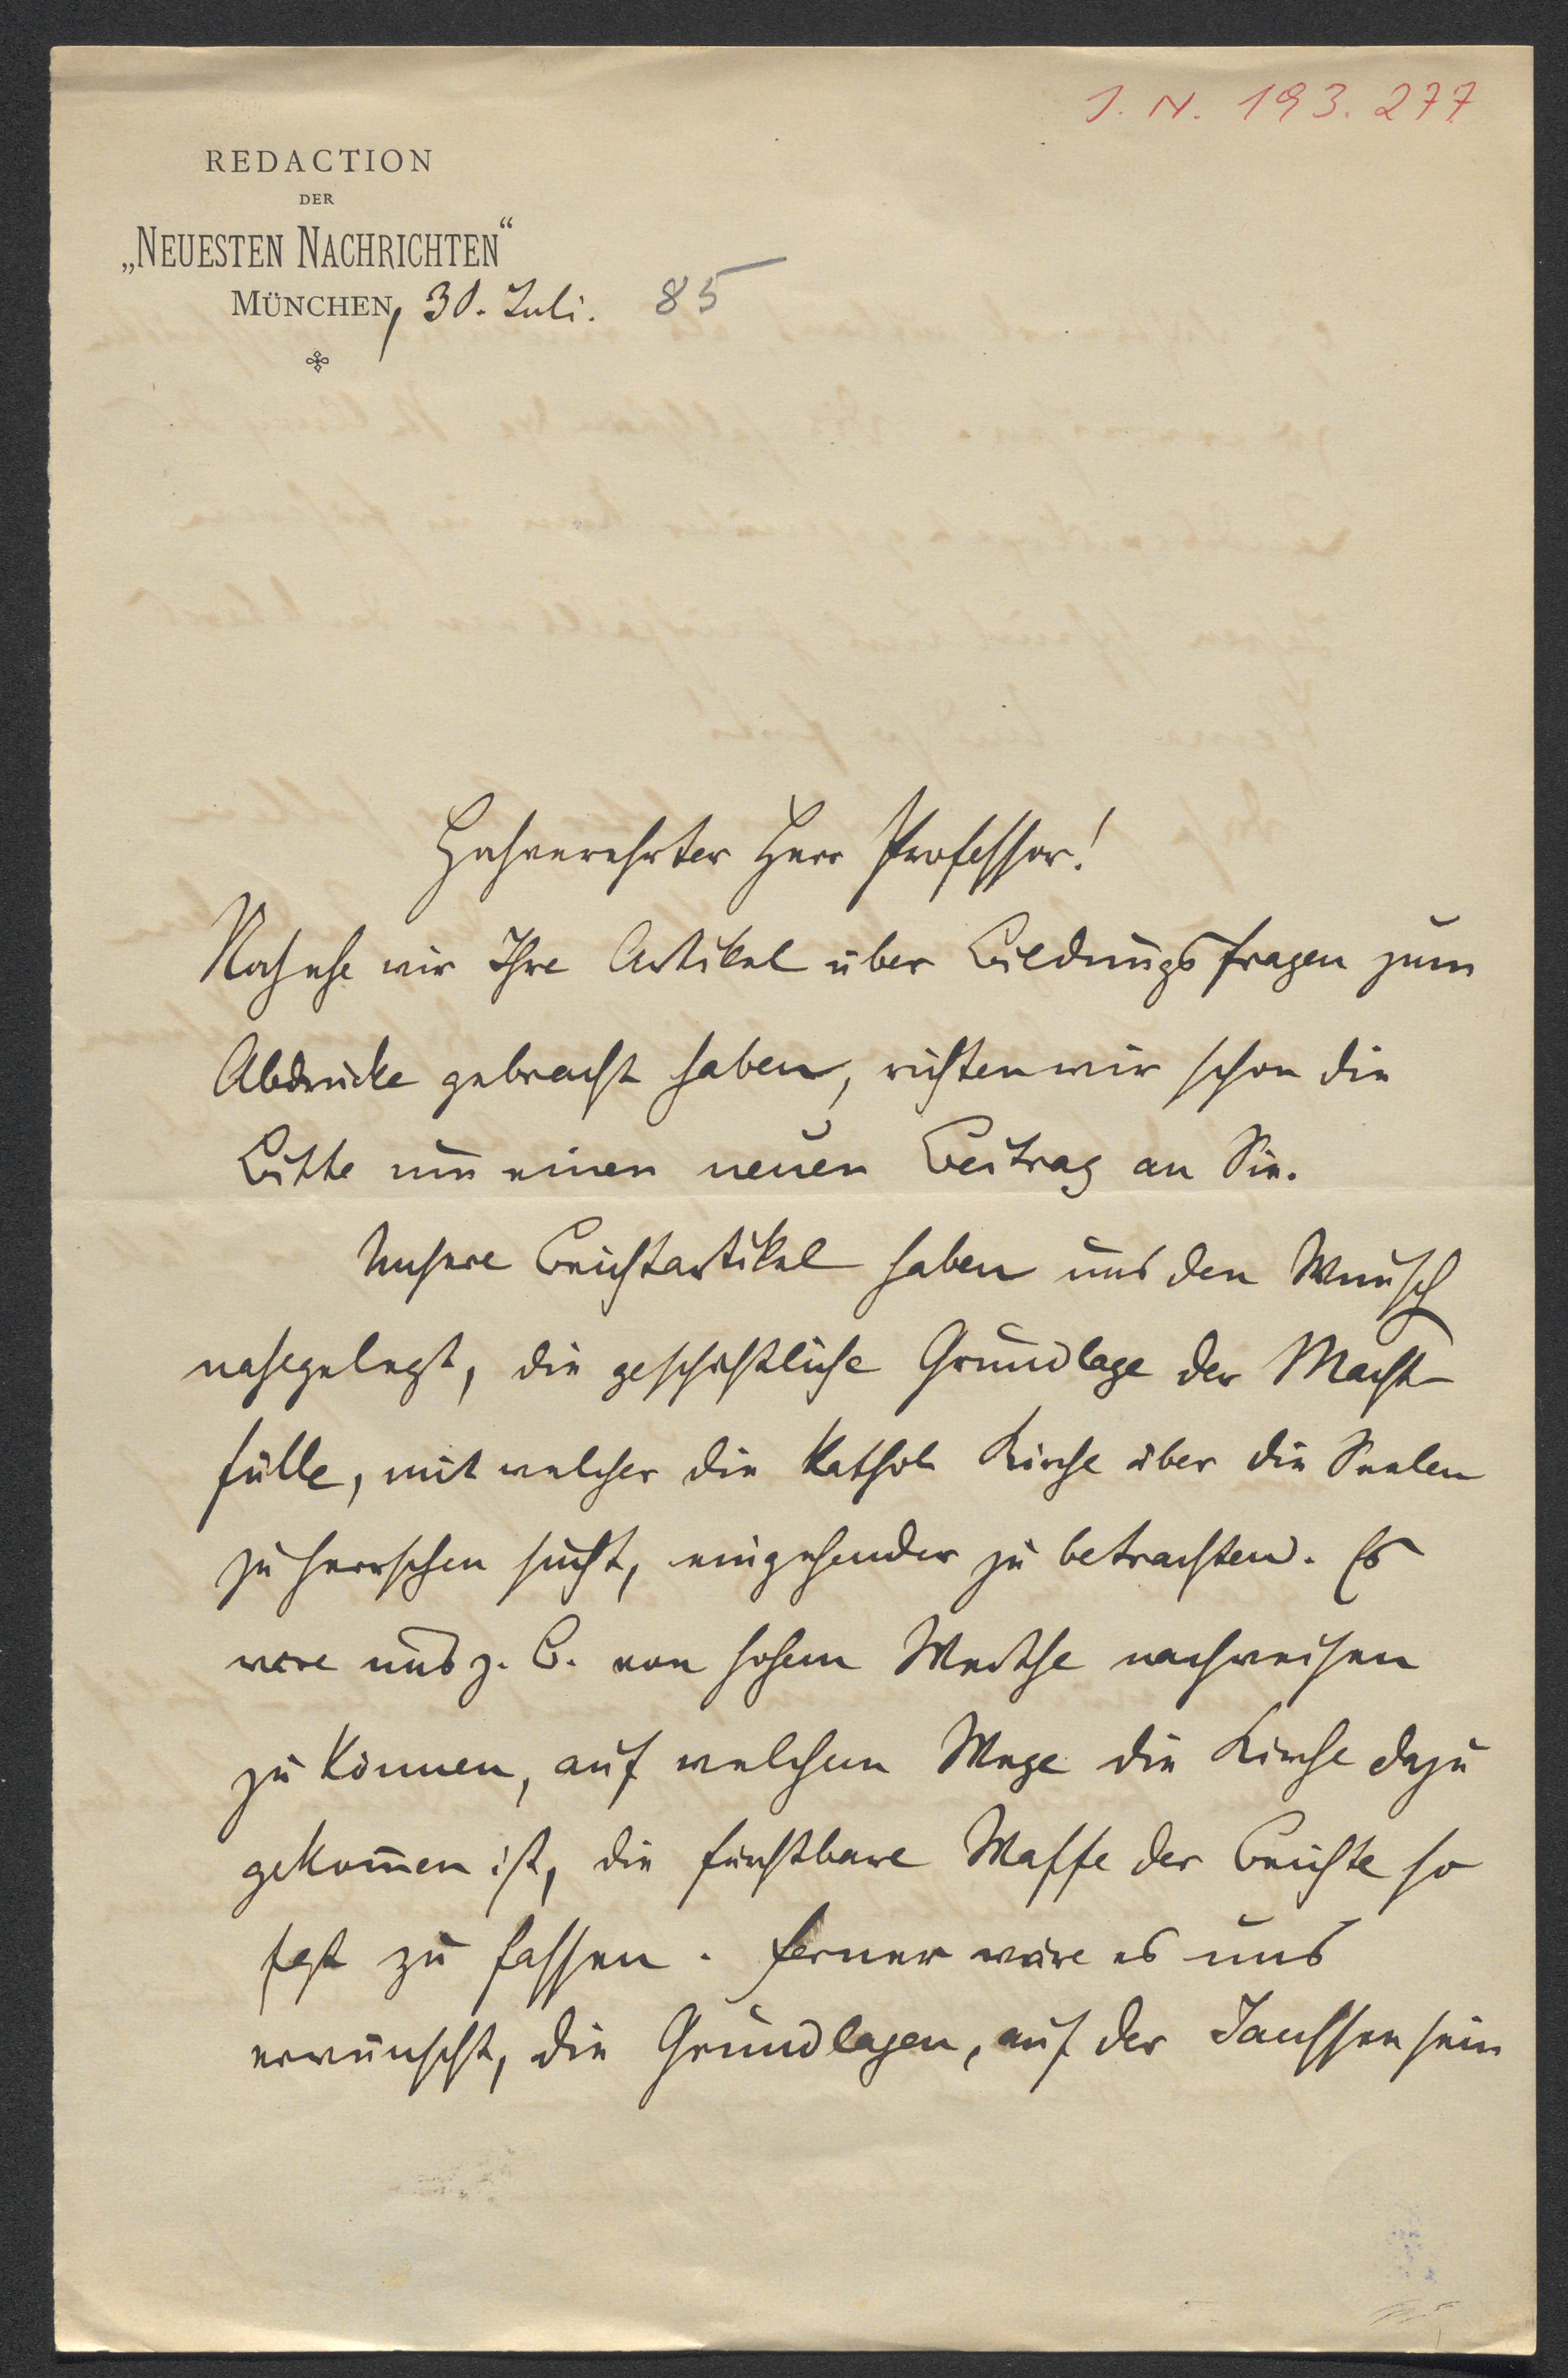 J. N. 193.277
REDACTION
DER
„NEUESTEN NACHRICHTEN“
MÜNCHEN, 30. Juli. 85
Hochverehrter Herr Professor!
Noch ehe wir Ihre Artikel über Bildungsfragen zum
Abdrucke gebracht haben, richten wir schon die
Bitte um einen neuen Beitrag an Sie.
Unsere Beichtartikel haben uns den Wunsch
nahegelegt, die geschichtliche Grundlage der Macht-
fülle, mit welcher die kathol Kirche über die Seelen
zu herrschen sucht, eingehender zu betrachten. Es
wäre uns z. B. von hohem Werthe nachweisen
zu können, auf welchem Wege die Kirche dazu
gekom̅en ist, die furchtbare Waffe der Beichte so
fest zu fassen. Ferner wäre es uns
erwünscht, die Grundlagen, auf der Janssen sein